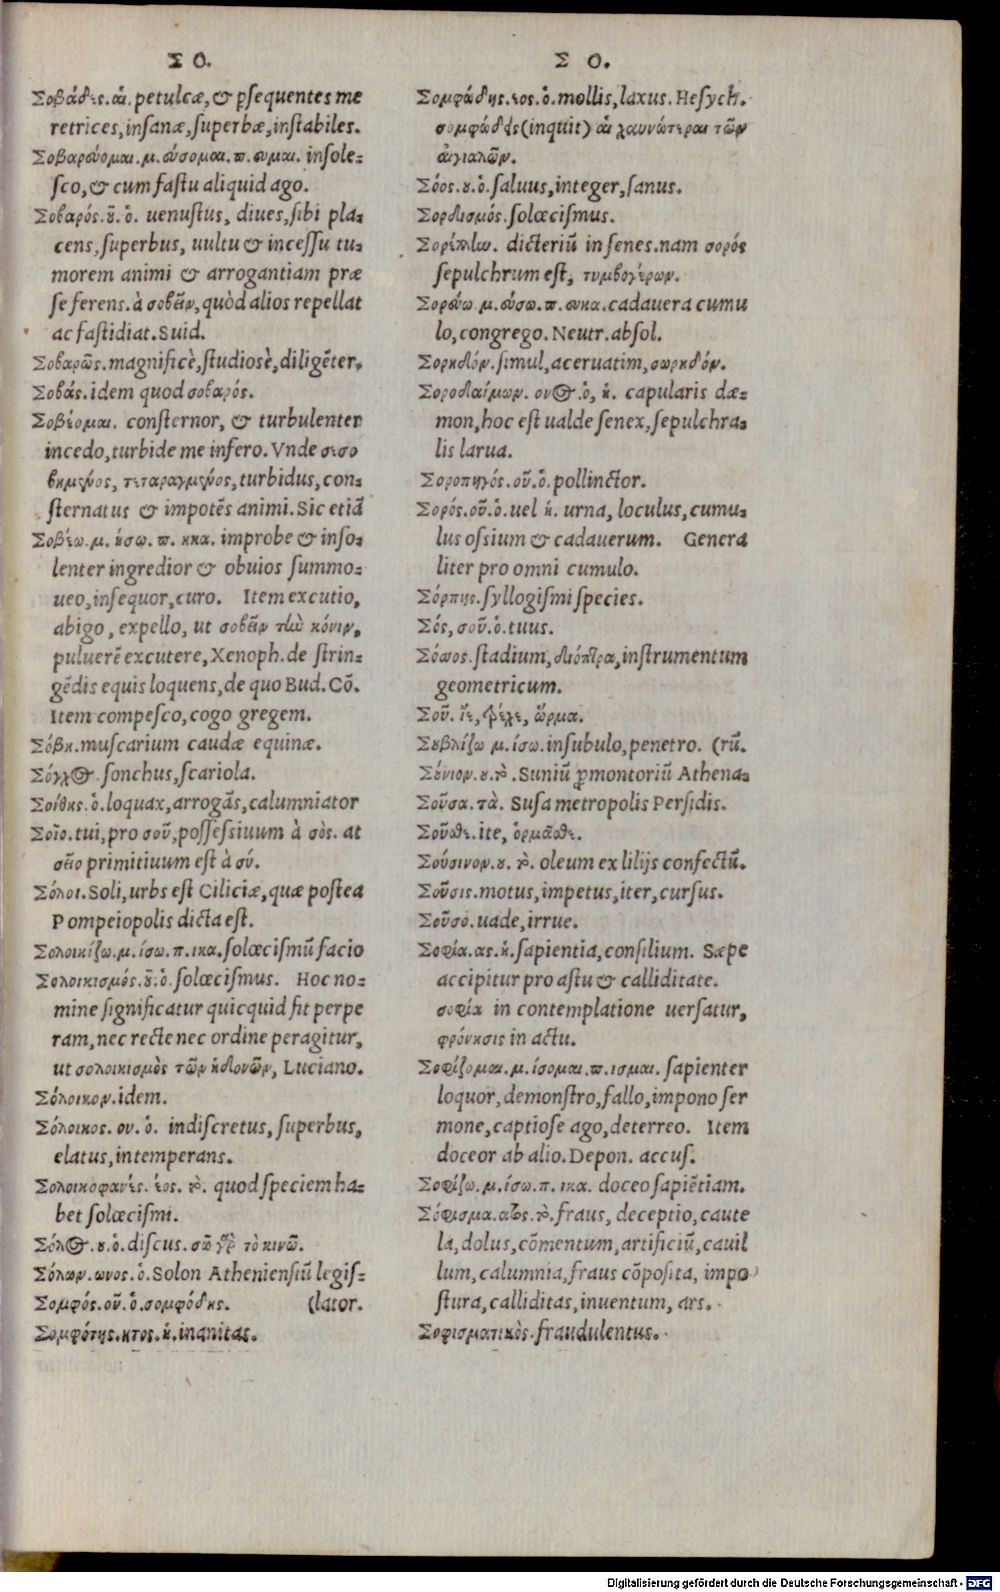 Σ Ο.
Σοβάδες. αἱ. petulcæ, & ꝑsequentes me
retrices, insanæ, superbæ, instabiles.
Σοβαρεύομαι. μ. εύσομαι. π. ευμαι. insole-
sco, & cum fastu aliquid ago.
Σοβαρός. οῦ. ὁ. uenustus, diues, sibi pla-
cens, superbus, uultu & incessu tu-
morem animi & arrogantiam præ
se ferens. à σοβεῖν, quòd alios repellat
ac fastidiat. Suid.
Σοβαρῶς. magnificè, studiosè, diligẽter.
Σοβάς. idem quod σοβαρός.
Σοβέομαι. consternor, & turbulenter
incedo, turbide me infero. Vnde σεσο
βημένος, τεταραγμένος, turbidus, con-
sternatus & impotẽs animi. Sic etiã
Σοβέω. μ. ήσω. π. ηκα. improbe & inso-
lenter ingredior & obuios summo-
ueo, insequor, curo. Item excutio,
abigo, expello, ut σοβεῖν τὴν κόνιν,
puluerẽ excutere, Xenoph. de strin-
gẽdis equis loquens, de quo Bud. Cõ.
Item compesco, cogo gregem.
Σόβη. muscarium caudæ equinæ.
Σόγχος. sonchus, scariola.
Σοίθης. ὁ. loquax, arrogãs, calumniator
Σοῖο. tui, pro σοῦ, possessiuum à σὸς. at
σεῖο primitiuum est à σύ.
Σόλοι. Soli, urbs est Ciliciæ, quæ postea
Pompeiopolis dicta est.
Σολοικίζω. μ. ίσω. π. ικα. solœcismũ facio
Σολοικισμός. οῦ. ὁ. solœcismus. Hoc no-
mine significatur quicquid fit perpe
ram, nec recte nec ordine peragitur,
ut σολοικισμὸς τῶν ἡδονῶν, Luciano.
Σόλοικον. idem.
Σόλοικος. ου. ὁ. indiscretus, superbus,
elatus, intemperans.
Σολοικοφανές. έος. τὸ. quod speciem ha-
bet solœcismi.
Σόλος. ου. ὁ. discus. σῶ γὰρ τὸ κινῶ.
Σόλων. ωνος. ὁ. Solon Atheniensiũ legis-
Σομφός. οῦ. ὁ. σομφόδης. (lator.
Σομφότης. ητος. ἡ. inanitas.
Σ Ο.
Σομφώδης. εος. ὁ. mollis, laxus. Hesych.
σομφώδεις (inquit) αἱ χαυνώτεραι τῶν
αἰγιαλῶν.
Σόος. ου. ὁ. saluus, integer, sanus.
Σορδισμός. solœcismus.
Σορέπλην. dicteriũ in senes. nam σορός
sepulchrum est, τυμβογέρων.
Σορεύω μ. εύσω. π. ευκα. cadauera cumu
lo, congrego. Neutr. absol.
Σορηδόν. simul, aceruatim, σωρηδόν.
Σοροδαίμων. ονος. ὁ, ἡ. capularis dæ-
mon, hoc est ualde senex, sepulchra-
lis larua.
Σοροπηγός. οῦ. ὁ. pollinctor.
Σορός. οῦ. ὁ. uel ἡ. urna, loculus, cumu-
lus ossium & cadauerum. Genera
liter pro omni cumulo.
Σόρπης. syllogismi species.
Σός, σοῦ. ὁ. tuus.
Σόσος. stadium, διόπτρα, instrumentum
geometricum.
Σοῦ. ἴε, τρέχε, ὥρμα.
Σουβλίζω μ. ίσω. insubulo, penetro. (rũ.
Σούνιον. ου. τὸ. Suniũ ꝓmontoriũ Athena-
Σοῦσα. τὰ. Susa metropolis Persidis.
Σοῦσθε. ite, ὁρμᾶσθε.
Σούσινον. ου. τὸ. oleum ex lilijs confectũ.
Σοῦσις. motus, impetus, iter, cursus.
Σοῦσο. uade, irrue.
Σοφία. ας. ἡ. sapientia, consilium. Sæpe
accipitur pro astu & calliditate.
σοφία in contemplatione uersatur,
φρόνησις in actu.
Σοφίζομαι. μ. ίσομαι. π. ισμαι. sapienter
loquor, demonstro, fallo, impono ser
mone, captiose ago, deterreo. Item
doceor ab alio. Depon. accus.
Σοφίζω. μ. ίσω. π. ικα. doceo sapiẽtiam.
Σόφισμα. ατος. τὸ. fraus, deceptio, caute
la, dolus, cõmentum, artificiũ, cauil
lum, calumnia, fraus cõposita, impo
stura, calliditas, inuentum, ars.
Σοφισματικὸς. fraudulentus.
Digitalisierung gefördert durch die Deutsche Forschungsgemeinschaft - DFG